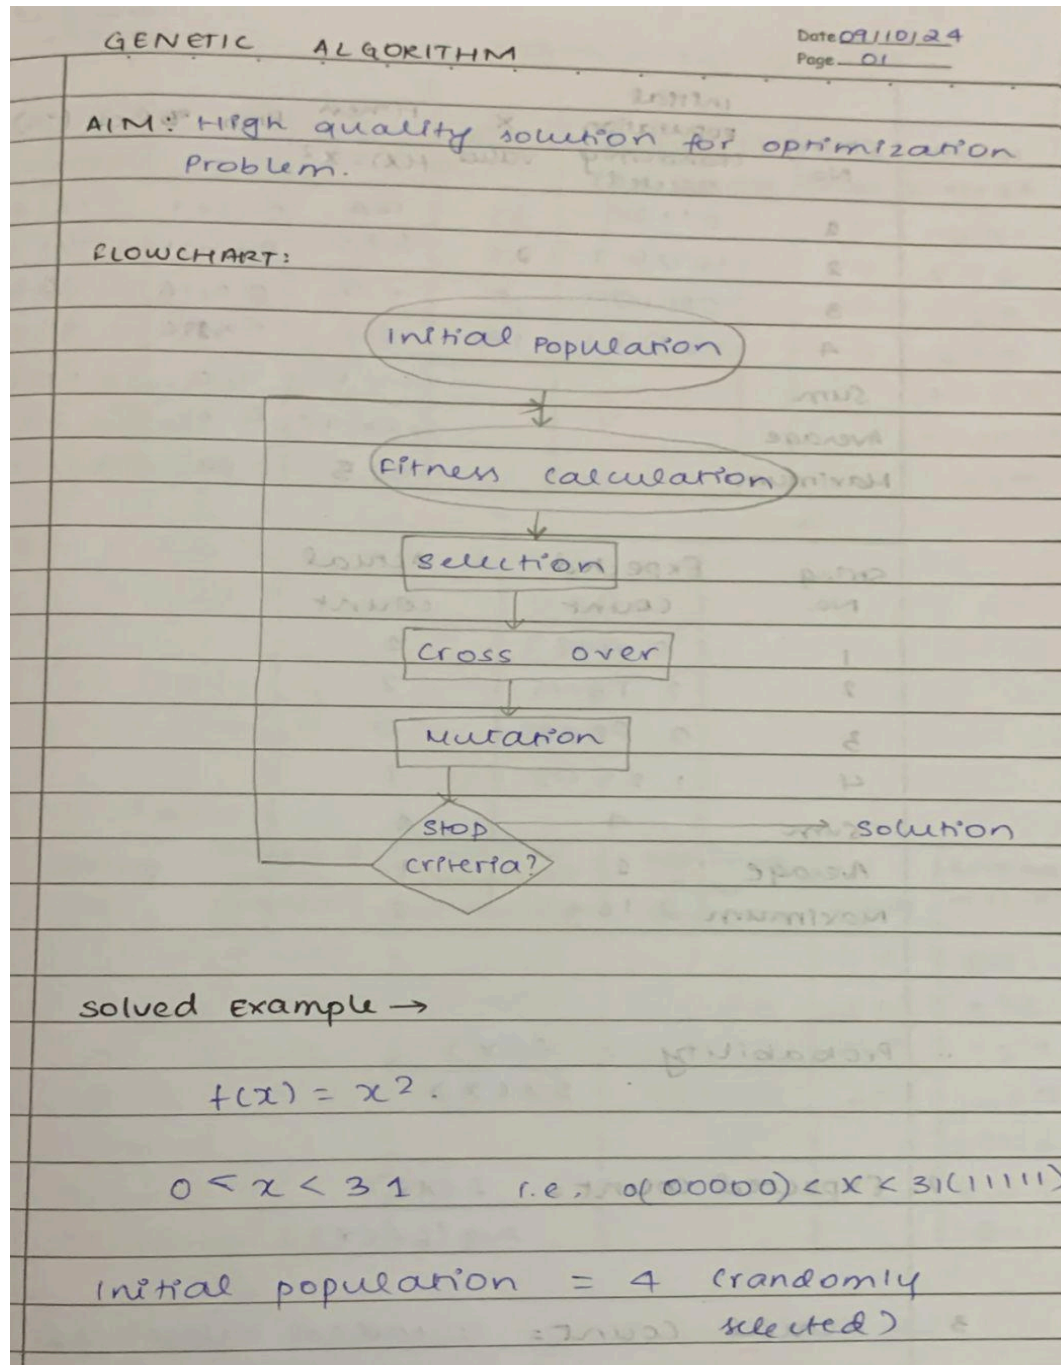 GENETIC ALGORITHM
Date 09/10/24
Page 01
AIM: High quality solution for optimization
Problem.
FLOWCHART:
Initial Population
Fitness calculation
Selection
Cross over
Mutation
Stop
criteria?
Solution
Solved Example →
f(x) = x².
0 < x < 31 i.e. 0(00000) < x < 31(11111)
Initial population = 4 (randomly
selected)